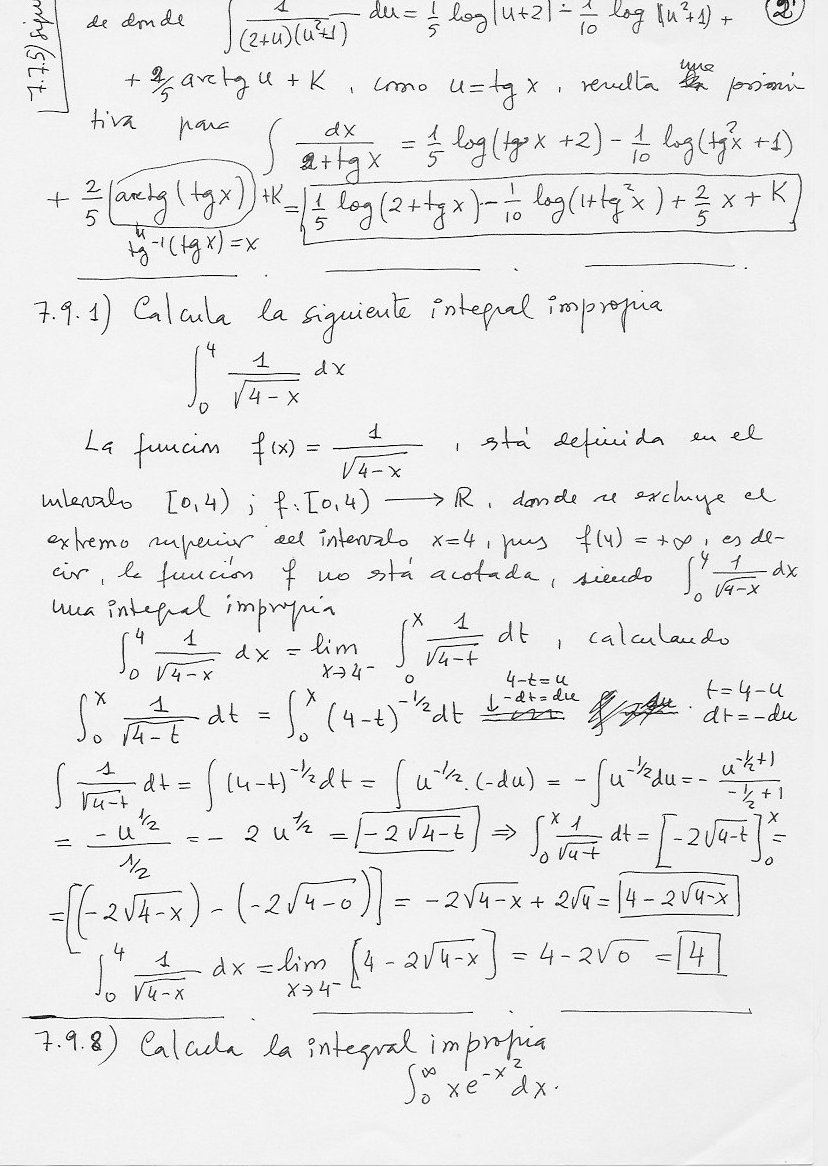 7.7.5) sigue
de donde ∫ 1/((2+u)(u²+1)) du = 1/5 log|u+2| - 1/10 log |(u²+1) + (2)
+ 2/5 arctg u + K, como u = tg x, resulta una primi
tiva para ∫ dx/(2+tg x) = 1/5 log(tg x + 2) - 1/10 log(tg²x + 1)
+ 2/5 (arctg (tg x)) + K = 1/5 log(2+tg x) - 1/10 log(1+tg²x) + 2/5 x + K
tg⁻¹(tg x) = x
7.9.1) Calcula la siguiente integral impropia
∫₀⁴ 1/√(4-x) dx
La función f(x) = 1/√(4-x), está definida en el
intervalo [0,4) ; f: [0,4) ⟶ ℝ, donde se excluye el
extremo superior del intervalo x=4, pues f(4) = +∞, es de-
cir, la función f no está acotada, siendo ∫₀⁴ 1/√(4-x) dx
una integral impropia
∫₀⁴ 1/√(4-x) dx = lim x→4⁻ ∫₀ˣ 1/√(4-t) dt, calculando
∫₀ˣ 1/√(4-t) dt = ∫₀ˣ (4-t)^(-1/2) dt 4-t=u ↓ -dt=du . t=4-u dt=-du
∫ 1/√(4-t) dt = ∫ (4-t)^(-1/2) dt = ∫ u^(-1/2) · (-du) = -∫ u^(-1/2) du = - u^(-1/2+1)/(-1/2+1)
= -u^(1/2)/(1/2) = - 2 u^(1/2) = -2√(4-t) ⇒ ∫₀ˣ 1/√(4-t) dt = [-2√(4-t)]₀ˣ =
= [(-2√(4-x)) - (-2√(4-0))] = -2√(4-x) + 2√4 = 4 - 2√(4-x)
∫₀⁴ 1/√(4-x) dx = lim x→4⁻ [4 - 2√(4-x)] = 4 - 2√0 = 4
7.9.8) Calcula la integral impropia
∫₀^∞ x e^(-x²) dx.